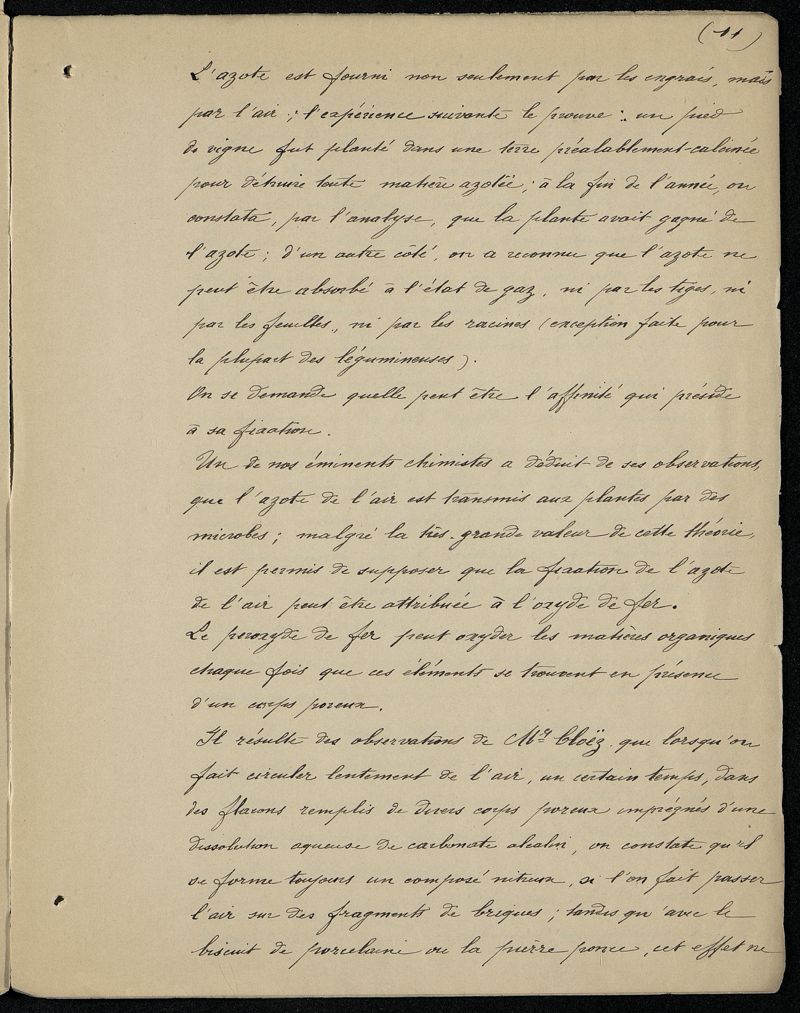 (11)
L'azote est fourni non seulement par les engrais, mais
par l'air ; l'expérience suivante le prouve : un pied
de vigne fut planté dans une terre préalablement calcinée
pour détruire toute matière azotée ; à la fin de l'année, on
constata, par l'analyse, que la plante avait gagné de
l'azote ; d'un autre côté, on a reconnu que l'azote ne
peut être absorbé à l'état de gaz, ni par les tiges, ni
par les feuilles, ni par les racines (exception faite pour
la plupart des légumineuses).
On se demande quelle peut être l'affinité qui préside
à sa fixation.
Un de nos éminents chimistes a déduit de ses observations,
que l'azote de l'air est transmis aux plantes par des
microbes ; malgré la très-grande valeur de cette théorie,
il est permis de supposer que la fixation de l'azote
de l'air peut être attribuée à l'oxyde de fer.
Le peroxyde de fer peut oxyder les matières organiques
chaque fois que ces éléments se trouvent en présence
d'un corps poreux.
Il résulte des observations de Mr Cloëz que lorsqu'on
fait circuler lentement de l'air, un certain temps, dans
des flacons remplis de divers corps poreux imprégnés d'une
dissolution aqueuse de carbonate alcalin, on constate qu'il
se forme toujours un composé nitreux, si l'on fait passer
l'air sur des fragments de briques ; tandis qu'avec le
biscuit de porcelaine ou la pierre ponce, cet effet ne